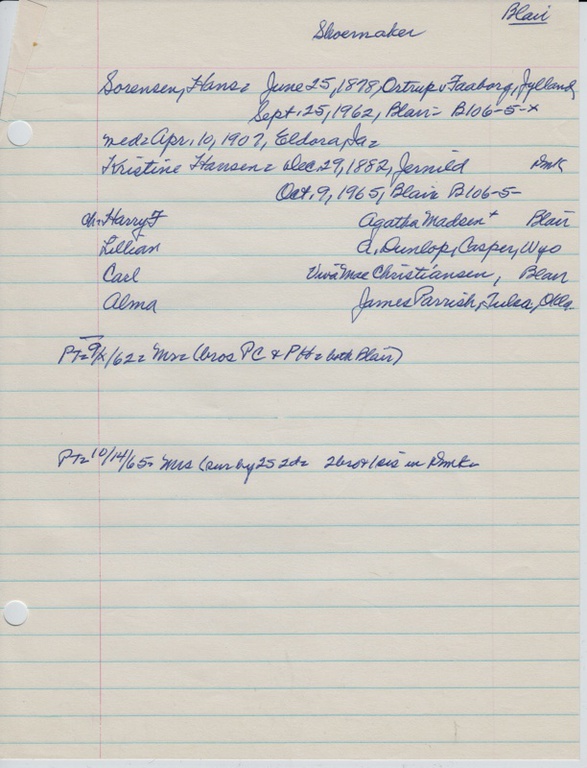 Blair
Shoemaker
Sorensen, Hans= June 25, 1878, Ortrup v Faaborg, Jylland
Sept. 25, 1962, Blair= B106-5-x
med= Apr. 10, 1907, Eldora, Ia=
Kristine Hansen= Dec. 29, 1882, Jernild Dmk
Oct. 9, 1965, Blair B106-5-
ch: Harry F Agatha Madsen+ Blair
Lillian A. Dunlop, Casper, Wyo
Carl Viva Mae Christiansen, Blair
Alma James Parrish, Tulsa, Okla
PT= 9/ /62= Mr= (bros PC & PH= both Blair)
PT= 10/14/65= Mrs (sur by 2s 2d= 2 bro+1 sis in Dmk=